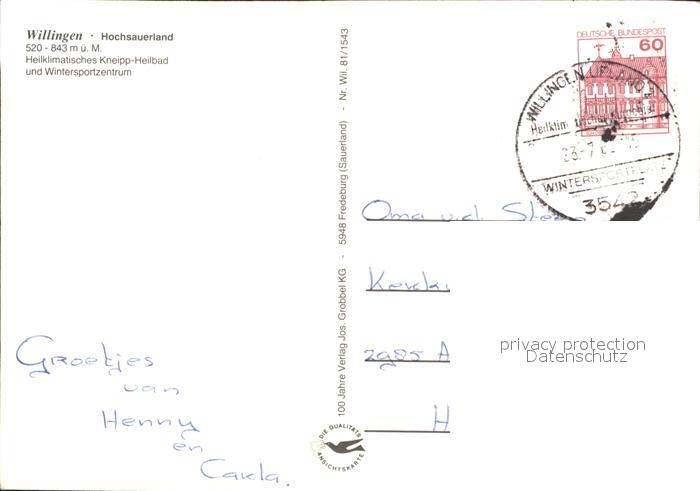 Willingen · Hochsauerland
520 - 843 m ü. M.
Heilklimatisches Kneipp-Heilbad
und Wintersportzentrum
100 Jahre Verlag Jos. Grobbel KG - 5948 Fredeburg (Sauerland) - Nr. Wil. 81/1543
DEUTSCHE BUNDESPOST
60
WILLINGEN (UPLAND)
Heilklim.
23.-7
WINTERSPORTPLATZ
3542
Oma v.d.
2985 A
H
privacy protection
Datenschutz
Groetjes
van
Henny
en
Carla.
DIE QUALITÄTS
ANSICHTSKARTE